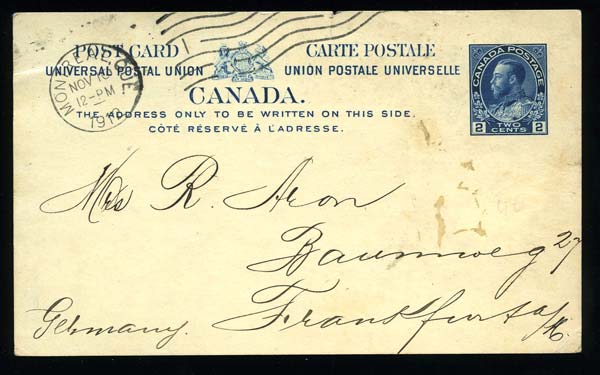 POST CARD CARTE POSTALE
UNIVERSAL POSTAL UNION UNION POSTALE UNIVERSELLE
CANADA.
THE ADDRESS ONLY TO BE WRITTEN ON THIS SIDE.
CÔTÉ RÉSERVÉ À L'ADRESSE.
MONTREAL, QUE.
NOV 10
12-PM
CANADA POSTAGE
2 TWO CENTS 2
Mrs R. Aron
Baumweg 27
Frankfurt a/M.
Germany.